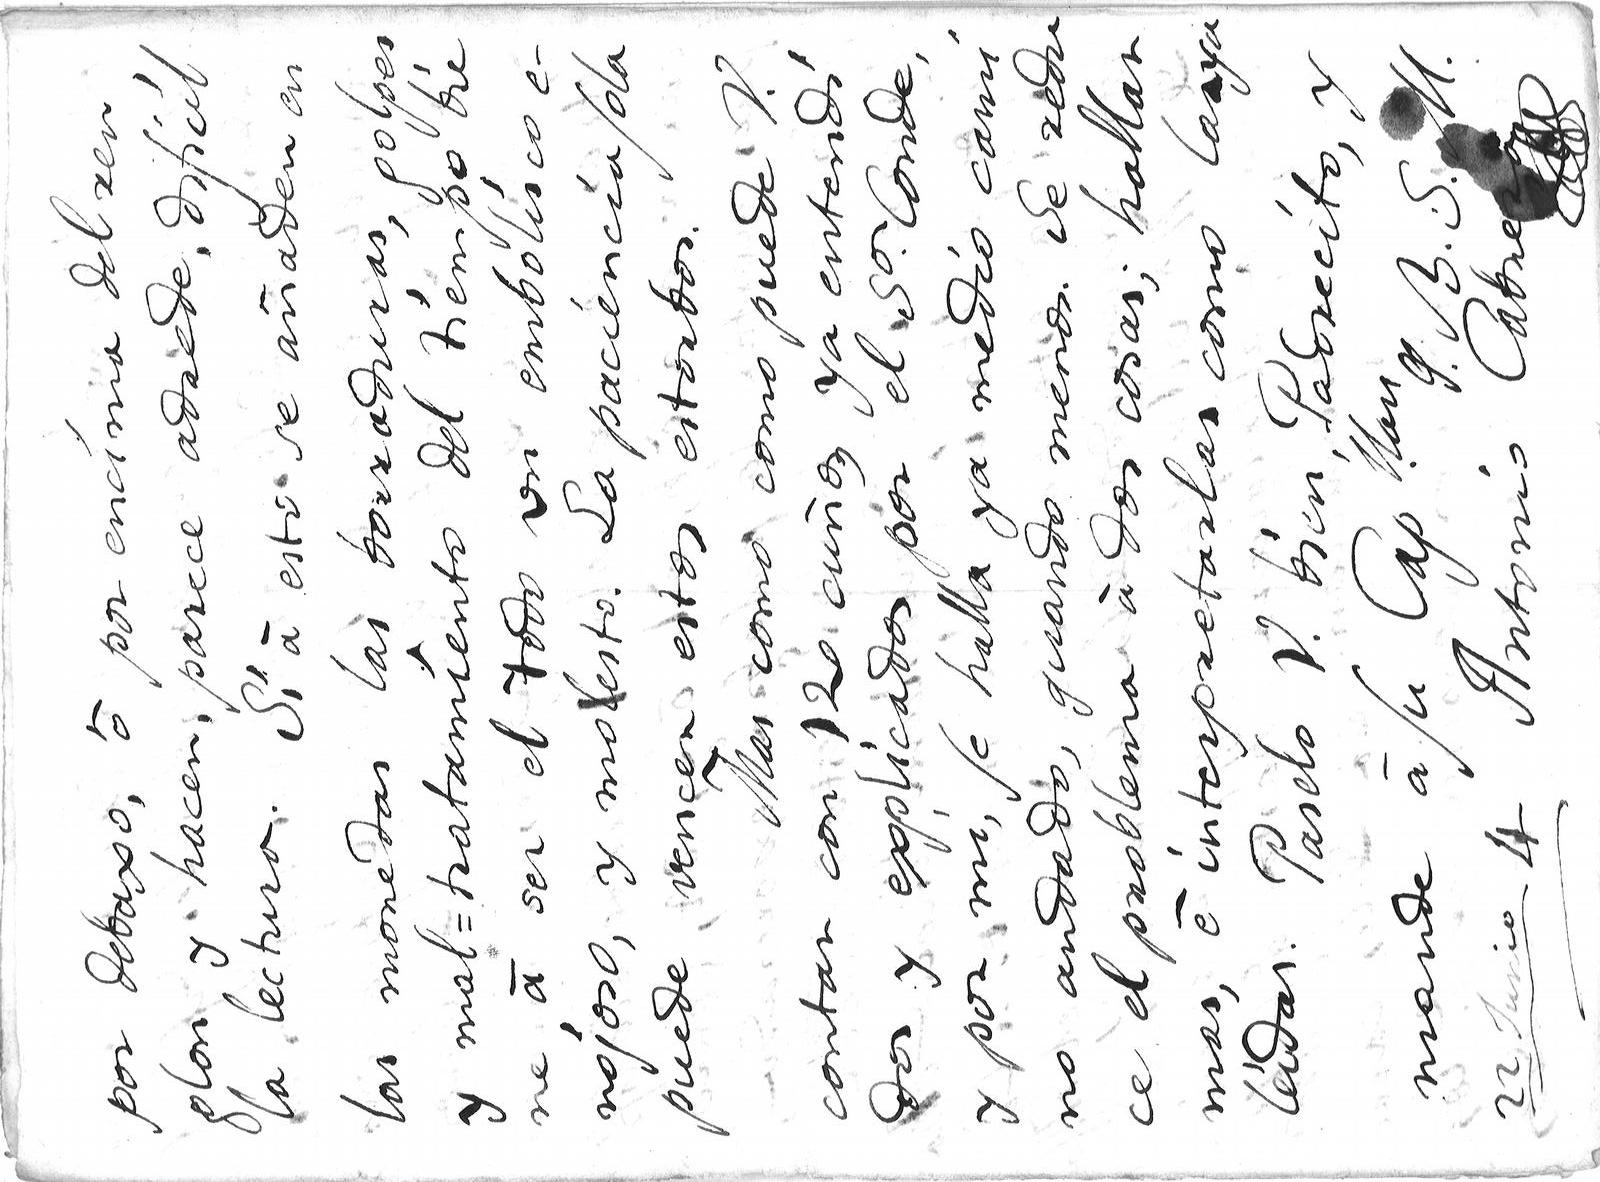 por debaxo, ò por encima del ren
glon y hacen, parece adrede, dificil
la lectura. Si à esto se añaden en
las monedas las borraduras, golpes
y mal=tratamiento del tiempo bie
ne à ser el todo un embolisco e-
nojoso, y molesto. La paciencia sola
puede vencer estos estorbos.
Mas como como puede V.
contar con 120 cuños ya entendi
dos y explicados por el Sor. Conde,
y por mi, se halla ya medio cami
no andado, quando menos. Se redu
ce el problema à dos cosas; hallar
mas, è interpretarlas como laya
leidas. Paselo V. bien, Padrecito, y
mande à su Cap Maŋ
q. B. S. M.
Antonio Cabrera
22 Junio 4